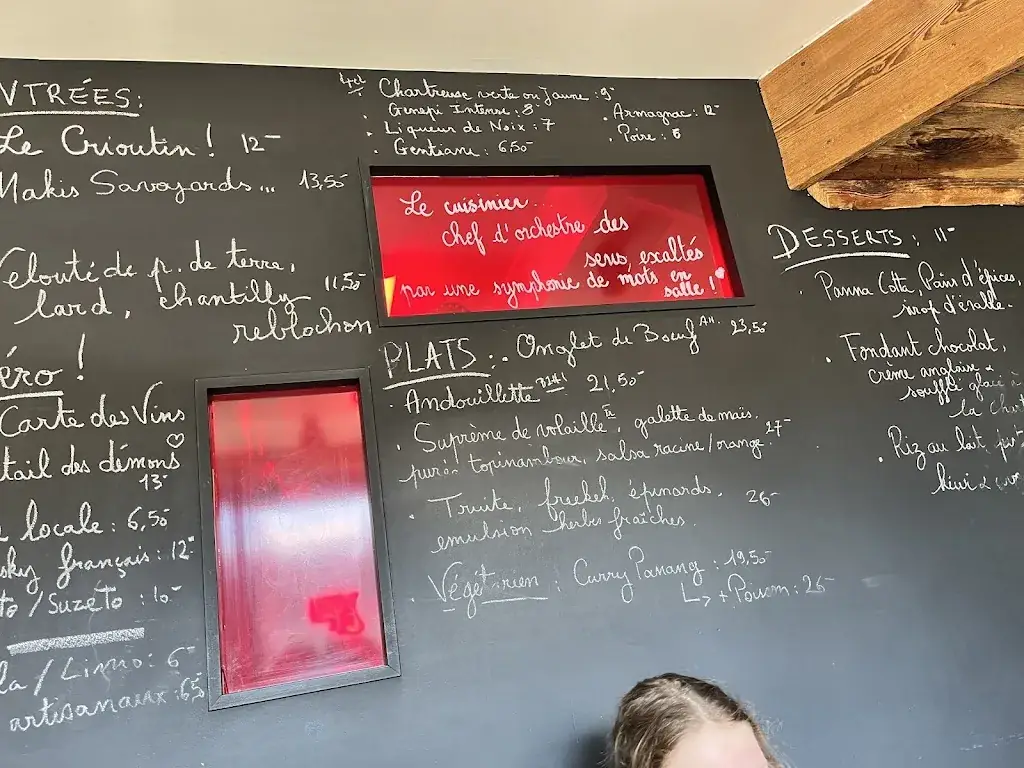 NTRÉES:
Le Crioutin ! 12-
Makis Savoyards... 13,50
Velouté de p. de terre, 11,50
lard, chantilly
reblochon
éro !
Carte des Vins
tail des démons
13-
locale : 6,50
sky français : 12-
to / Suzeto : 10-
la / Limo : 6-
artisanaux : 6,5
4cl
Chartreuse verte ou Jaune : 9-
. Genepi Intense : 8-
. Liqueur de Noix : 7
. Gentiane : 6,50
. Armagnac : 12-
. Poire : 8
Le cuisinier...
chef d'orchestre des
sens exaltés
par une symphonie de mots en
salle !
PLATS : . Onglet de Boeuf 23,50
. Andouillette 21,50
. Suprême de volaille, galette de maïs,
purée topinambour, salsa racine/orange. 27-
. Truite, freekeh, épinards, 26-
emulsion herbes fraîches.
. Végétarien : Curry Panang : 19,50
↳ + Poisson : 26-
DESSERTS : 11-
. Panna Cotta, Pain d'épices,
sirop d'érable.
. Fondant chocolat,
crème anglaise &
soufflé glacé à
la Chart
. Riz au lait,
kiwi &